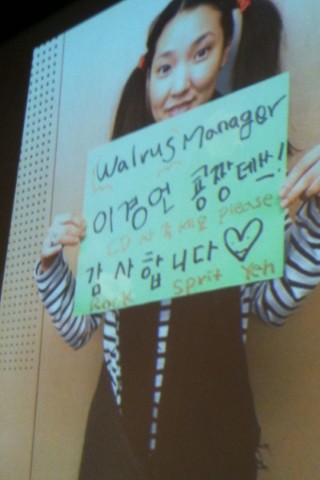 Walrus Manager
이경언 공짱 데쓰!
CD 사주세요 please
감사합니다♡
Rock Sprit Yeh